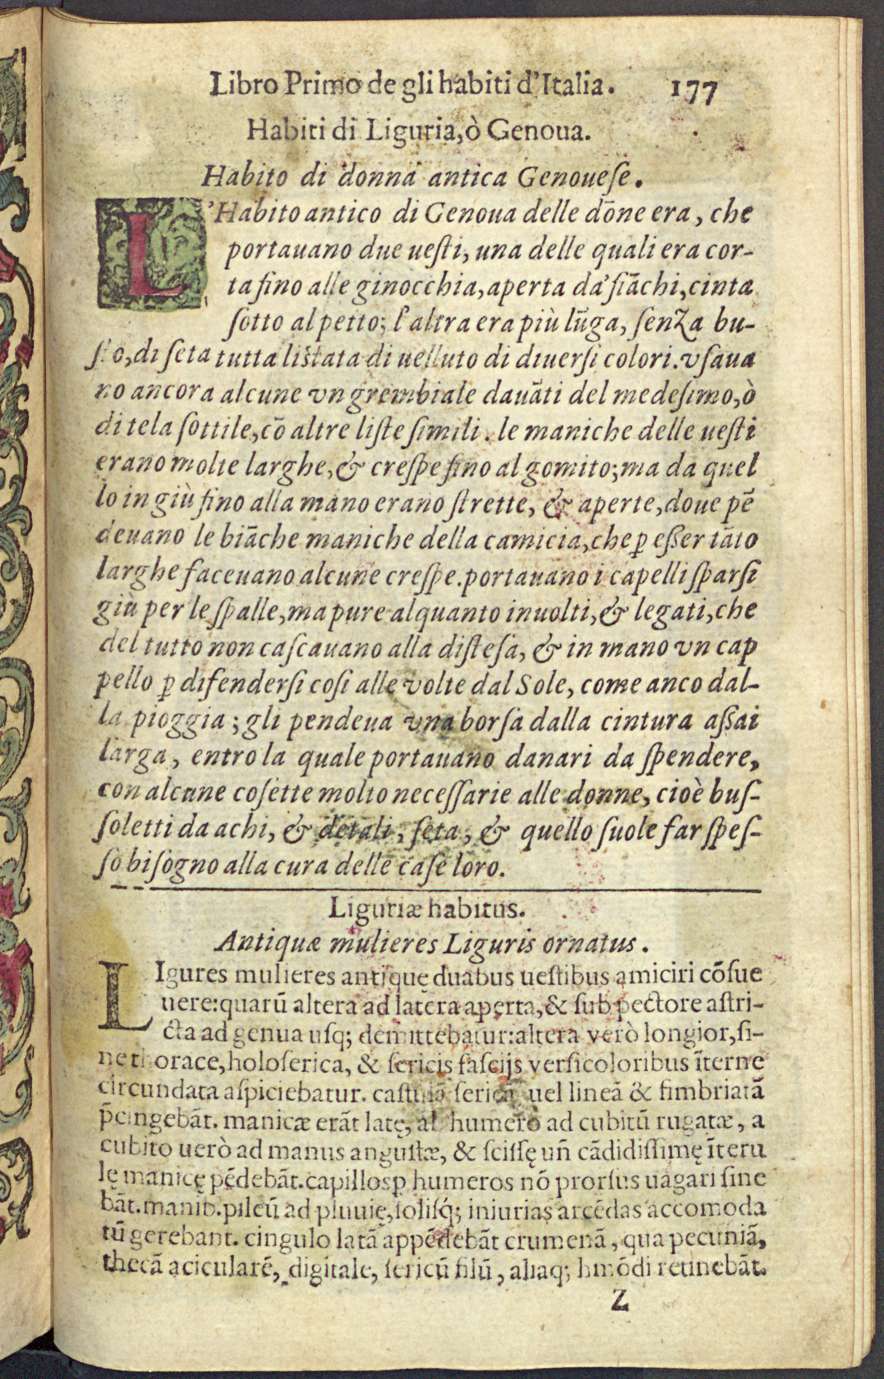 Libro Primo de gli habiti d'Italia. 177
Habiti di Liguria, ò Genoua.
Habito di donna antica Genouese.
L'Habito antico di Genoua delle dōne era, che
portauano due uesti, una delle quali era cor-
ta fino alle ginocchia, aperta da' fiāchi, cinta
sotto al petto; l'altra era più lūga, senza bu-
sto, di seta tutta listata di uelluto di diuersi colori. vsaua
no ancora alcune vn grembiale dauāti del medesimo, ò
di tela sottile, cō altre liste simili. le maniche delle uesti
erano molte larghe, & crespe fino al gomito; ma da quel
lo in giù fino alla mano erano strette, & aperte, doue pē
deuano le biāche maniche della camicia, che ꝑ esser tāto
larghe faceuano alcune crespe. portauano i capelli sparsi
giu per le spalle, ma pure alquanto inuolti, & legati, che
del tutto non cascauano alla distesa, & in mano vn cap
pello ꝑ difendersi cosi alle volte dal Sole, come anco dal-
la pioggia; gli pendeua vna borsa dalla cintura assai
larga, entro la quale portauano danari da spendere,
con alcune cosette molto necessarie alle donne, cioè bus-
soletti da achi, & detali, seta, & quello suole far spes-
so bisogno alla cura delle case loro.
Liguriæ habitus.
Antiquæ mulieres Liguris ornatus.
LIgures mulieres antique duabus uestibus amiciri cōsue
uere: quarū altera ad latera aperta, & sub pectore astri-
cta ad genua usq; demittebatur: altera verò longior, si-
ne thorace, holoserica, & sericis fascijs versicoloribus īterne
circundata aspiciebatur. sericā uel lineā & fimbriatā
p̄cingebāt. manicæ erāt latę, ab humero ad cubitū rugatæ, a
cubito uerò ad manus angustæ, & scissę uñ cādidissimę īteru
lę manicę pēdebāt. capillos ꝑ humeros nō prorsus uagari sine
bāt. manib. pileū ad pluuię, solisq́; iniurias arcēdas accomoda
tū gerebant. cingulo latā appēdebāt crumenā, qua pecuniā,
thecā aciculare, digitale, sericū filū, aliaq; hmōdi retinebāt.
Z